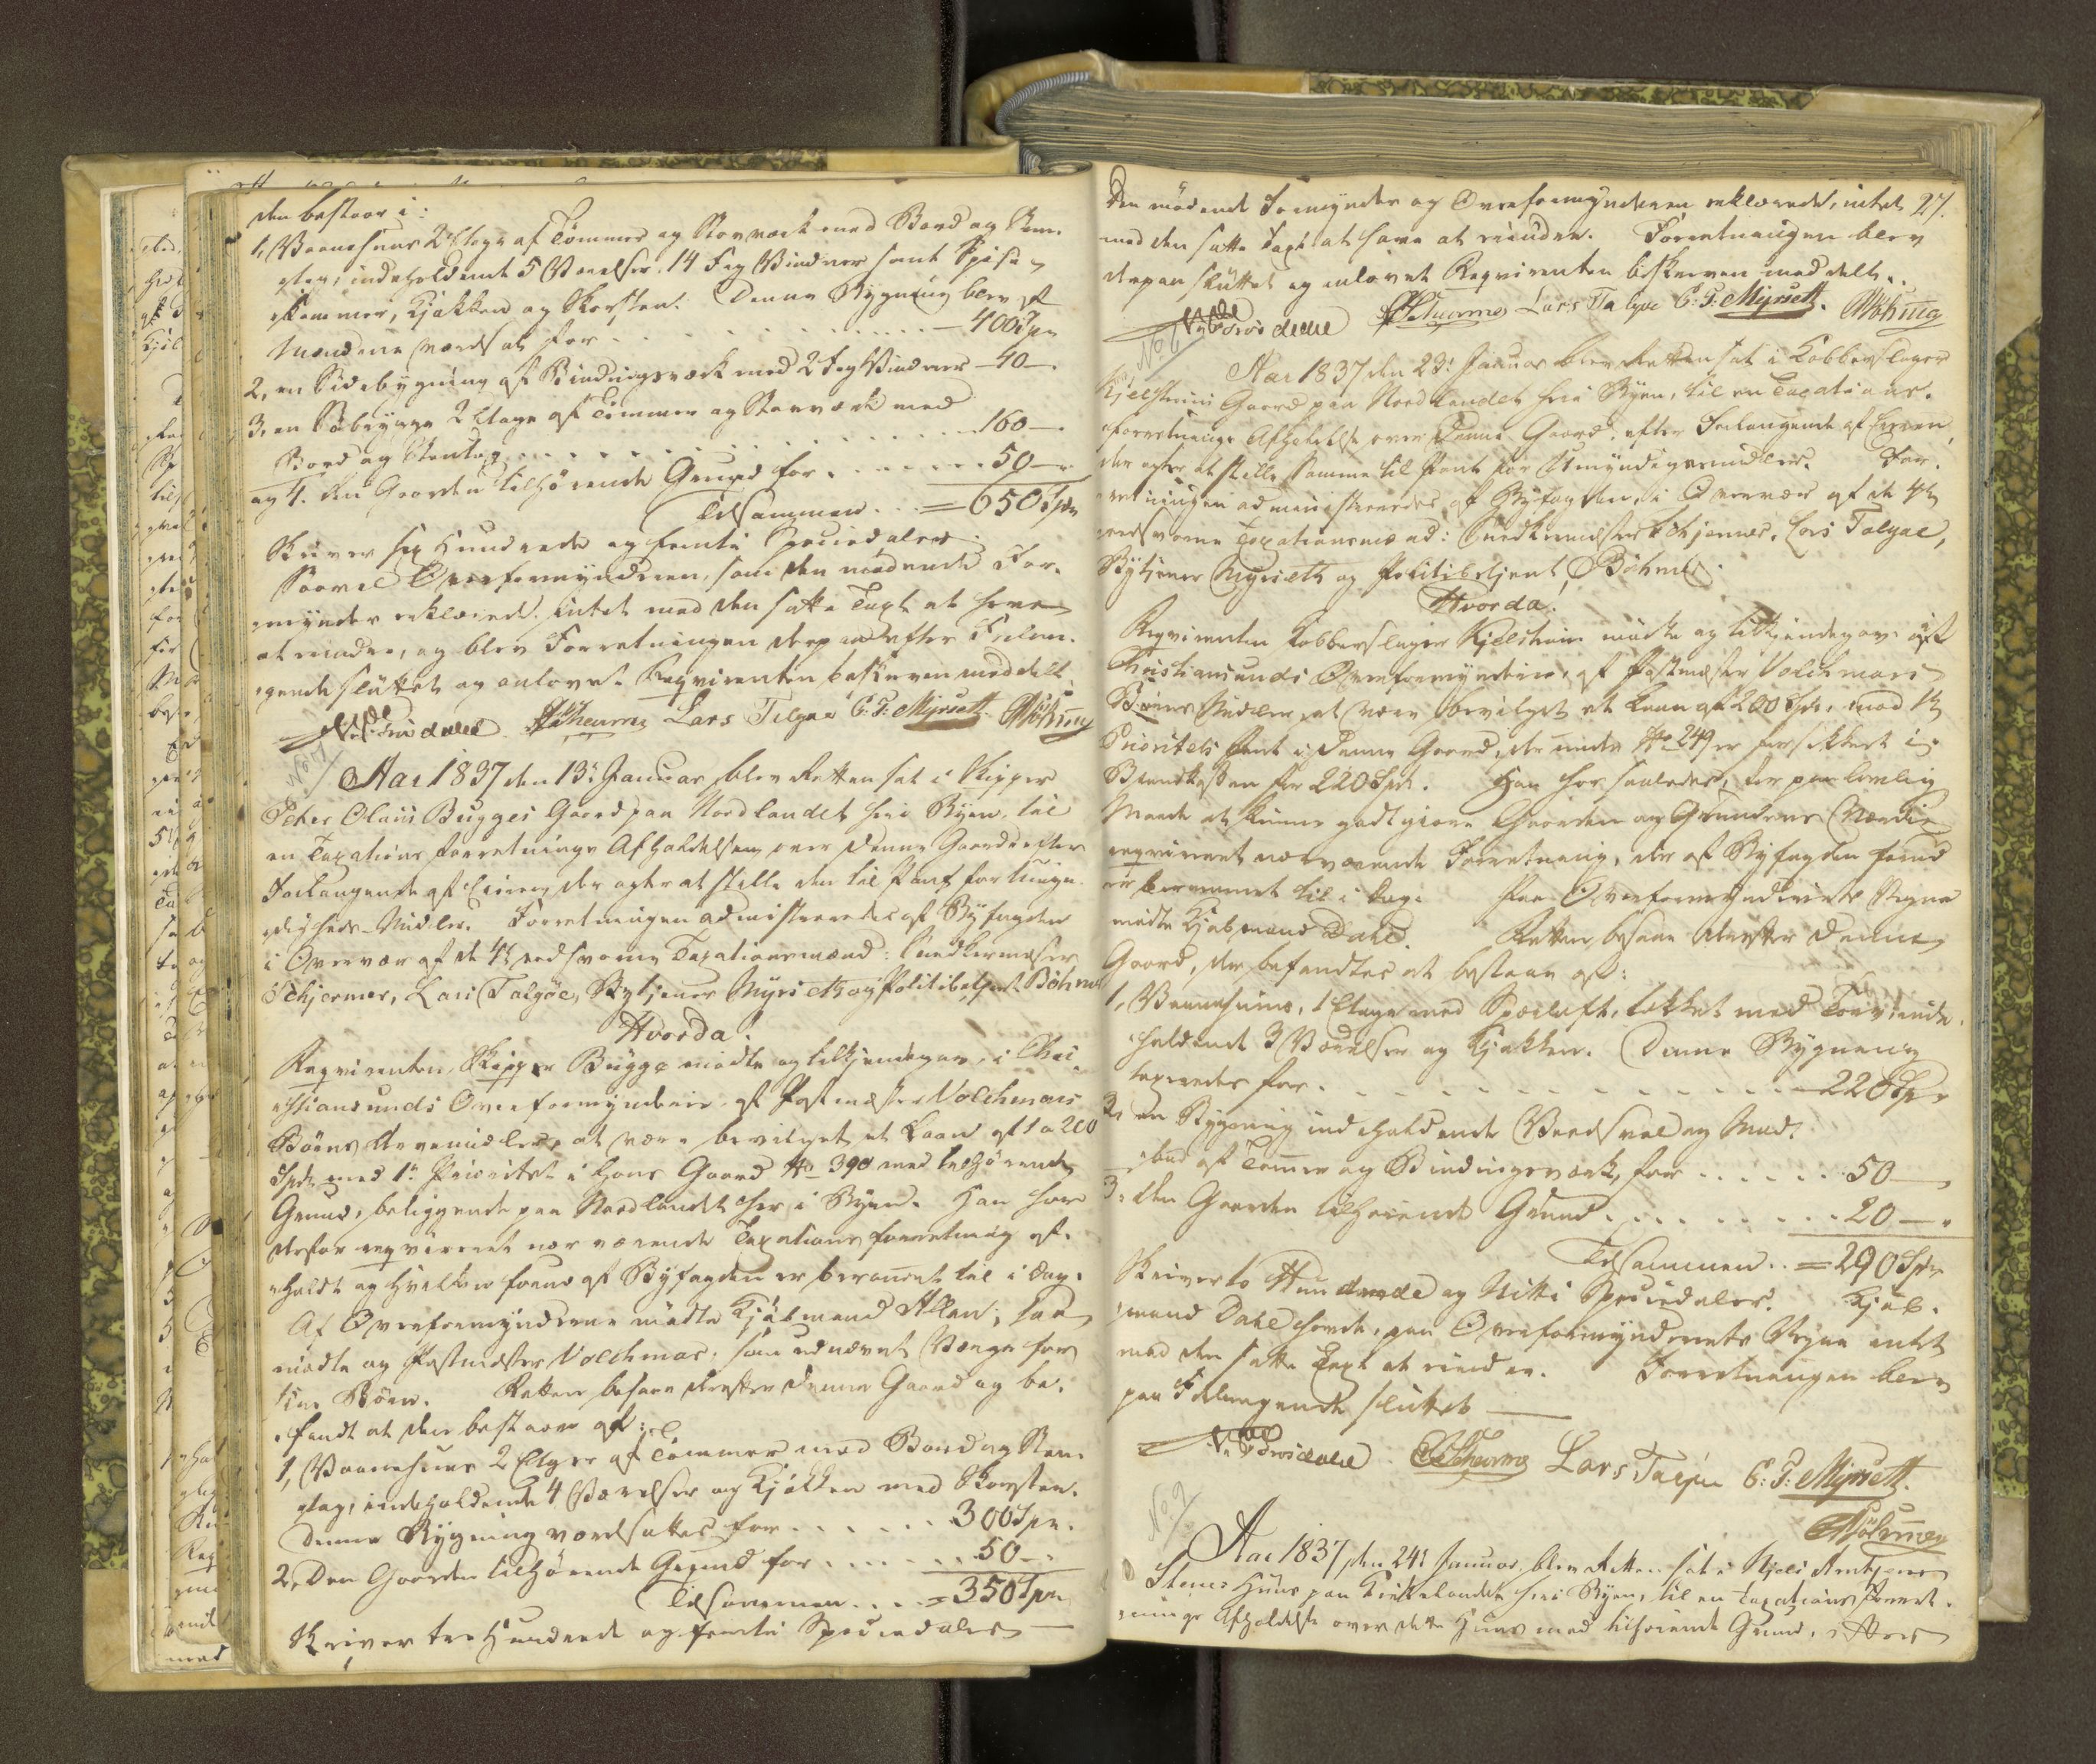 den bestaar i:
1, Vaanehuus 2 Etage af Tømmer og Stavværk med Bord og Steen-
tag, indeholdende 5 Værelser, 14 Fag Vinduer samt Spise-
kammer, Kjøkken og Skorsten. Denne Bygning blev af
Mændene værdsat for . . . . . . . . . . 400 Spd
2, en Sidebygning af Bindingsværk med 2 Fag Vinduer - 40 -
3, en Søebrygge 2 Etage af Tømmer og Stavværk med
Bord og Steentag . . . . . . . . . . 160 -
og 4. den Gaarden tilhørende Grund for . . . . . . . 50 -
Tilsammen . . . = 650 Spd
Skriver sex Hundrede og femti Speciedaler.
Saavel Overformynderen, som den mødende For-
mynder erklærede, intet mod den satte Taxt at have
at erindre, og blev Forretningen derpaa efter Forlan-
gende sluttet og anlovet Reqvirenten beskreven meddelt.
Lars Talgøe C. F. Myrseth. Böhme
No 7
Aar 1837 den 13de Januar, blev Retten sat i Skipper
Peter Olaus Bugges Gaard paa Nordlandet her i Byen, til
en Taxations Forretnings Afholdelse over denne Gaard efter
Forlangende af Eieren, der agter at stille den til Pant for Umyn-
digheds-Midler. Forretningen administreredes af Byfogden
i Overvær af de 4de eedsvorne Taxationsmænd: Snedkermester
Schjermer, Lars Talgøe, Bytjener Myrseth og Politibetjent Böhme
Hvorda!
Reqvirenten Skipper Bugge mødte og tilkjendegav, i Chri-
stiansunds Overformynderie af Postmester Volchmars
Børns Arvemidler, at være bevilget et Laan af 1 a 200
Spd. mod 1ste Prioritet i hans Gaard No 390 med tilhørende
Grund, beliggende paa Nordlandet her i Byen. Han har
derfor reqvireret nærværende Taxationsforretning af-
holdt og hvilken forud af Byfogden er berammet til i Dag.
Af Overformynderne mødte Kjøbmand Allan; saa
mødte og Postmester Volchmar, som udnævnt Værge for
sine Børn. Retten besaae derefter denne Gaard og be-
fandt at den bestaar af:
1, Vaanehuus 2 Etager af Tømmer med Bord og Steen-
tag, indeholdende 4 Værelser og Kjøkken med Skorsten.
Denne Bygning værdsattes for . . . . . . 300 Spd.
2, Den Gaarden tilhørende Grund for . . . . . . 50 -
Tilsammen . . . = 350 Spd.
Skriver tre Hundrede og femti Speciedaler
27.
Den mødende Formynder og Overformynderen erklærede, intet
mod den satte Taxt at have at erindre. Forretningen blev
derpaa sluttet og anlovet Reqvirenten beskreven meddelt.
Lars Talgøe C. F. Myrseth. Böhme
No 8
Aar 1837 den 23de Januar blev Retten sat i Kobberslager
Kjelstrins Gaard paa Nordlandet her i Byen, til en Taxations-
forretnings Afholdelse over denne Gaard, efter Forlangende af Eieren,
der agter at stille samme til Pant for Umyndigemidler. For-
retningen administreredes af Byfogden, i Overvær af de 4de
eedsvorne Taxationsmænd: Snedkermester Schjermer, Lars Talgøe,
Bytjener Myrseth og Politibetjent Böhme.
Hvorda!
Reqvirenten Kobberslager Kjelstrin mødte og tilkjendegav af
Christiansunds Overformynderie, af Postmester Volchmars
Børns Midler, at være bevilget et Laan af 200 Spd. mod 1ste
Prioritets Pant i denne Gaard, der under No 249 er forsikkret i
Brandkassen for 220 Spd. Han har saaledes, for paa lovlig
Maade at kunne godtgjøre Gaarden og Grundens Værdie
reqvireret nærværende Forretning, der af Byfogden forud
er berammet til i Dag. Paa Overformynderiets Vegne
mødte Kjøbmand Dahl. Retten besaae derefter denne
Gaard, der befandtes at bestaae af:
1, Vaanehuus, 1 Etage med Sparloft, tækket med Torv, inde-
holdende 3 Værelser og Kjøkken. Denne Bygning
taxeredes for . . . . . . . . . . 220 Spd
2, en Bygning indeholdende Vedskval og Mad-
bod af Tømmer og Bindingsværk, for . . . . . . 50 -
3, den Gaarden tilhørende Grund . . . . . . . . 20 -
Tilsammen . . = 290 Spd
Skriver to Hundrede og Nitti Speciedaler. Kjøb-
mand Dahl havde, paa Overformynderiets Vegne intet
mod den satte Taxt at erindre. Forretningen blev
paa Forlangende sluttet
Lars Talgøe C. F. Myrseth.
Böhme
No 9
Aar 1837, den 24de Januar blev Retten sat i
Huus paa Kirkelandet her i Byen, til en Taxations Forret-
nings Afholdelse over dette Huus med tilhørende Grund,